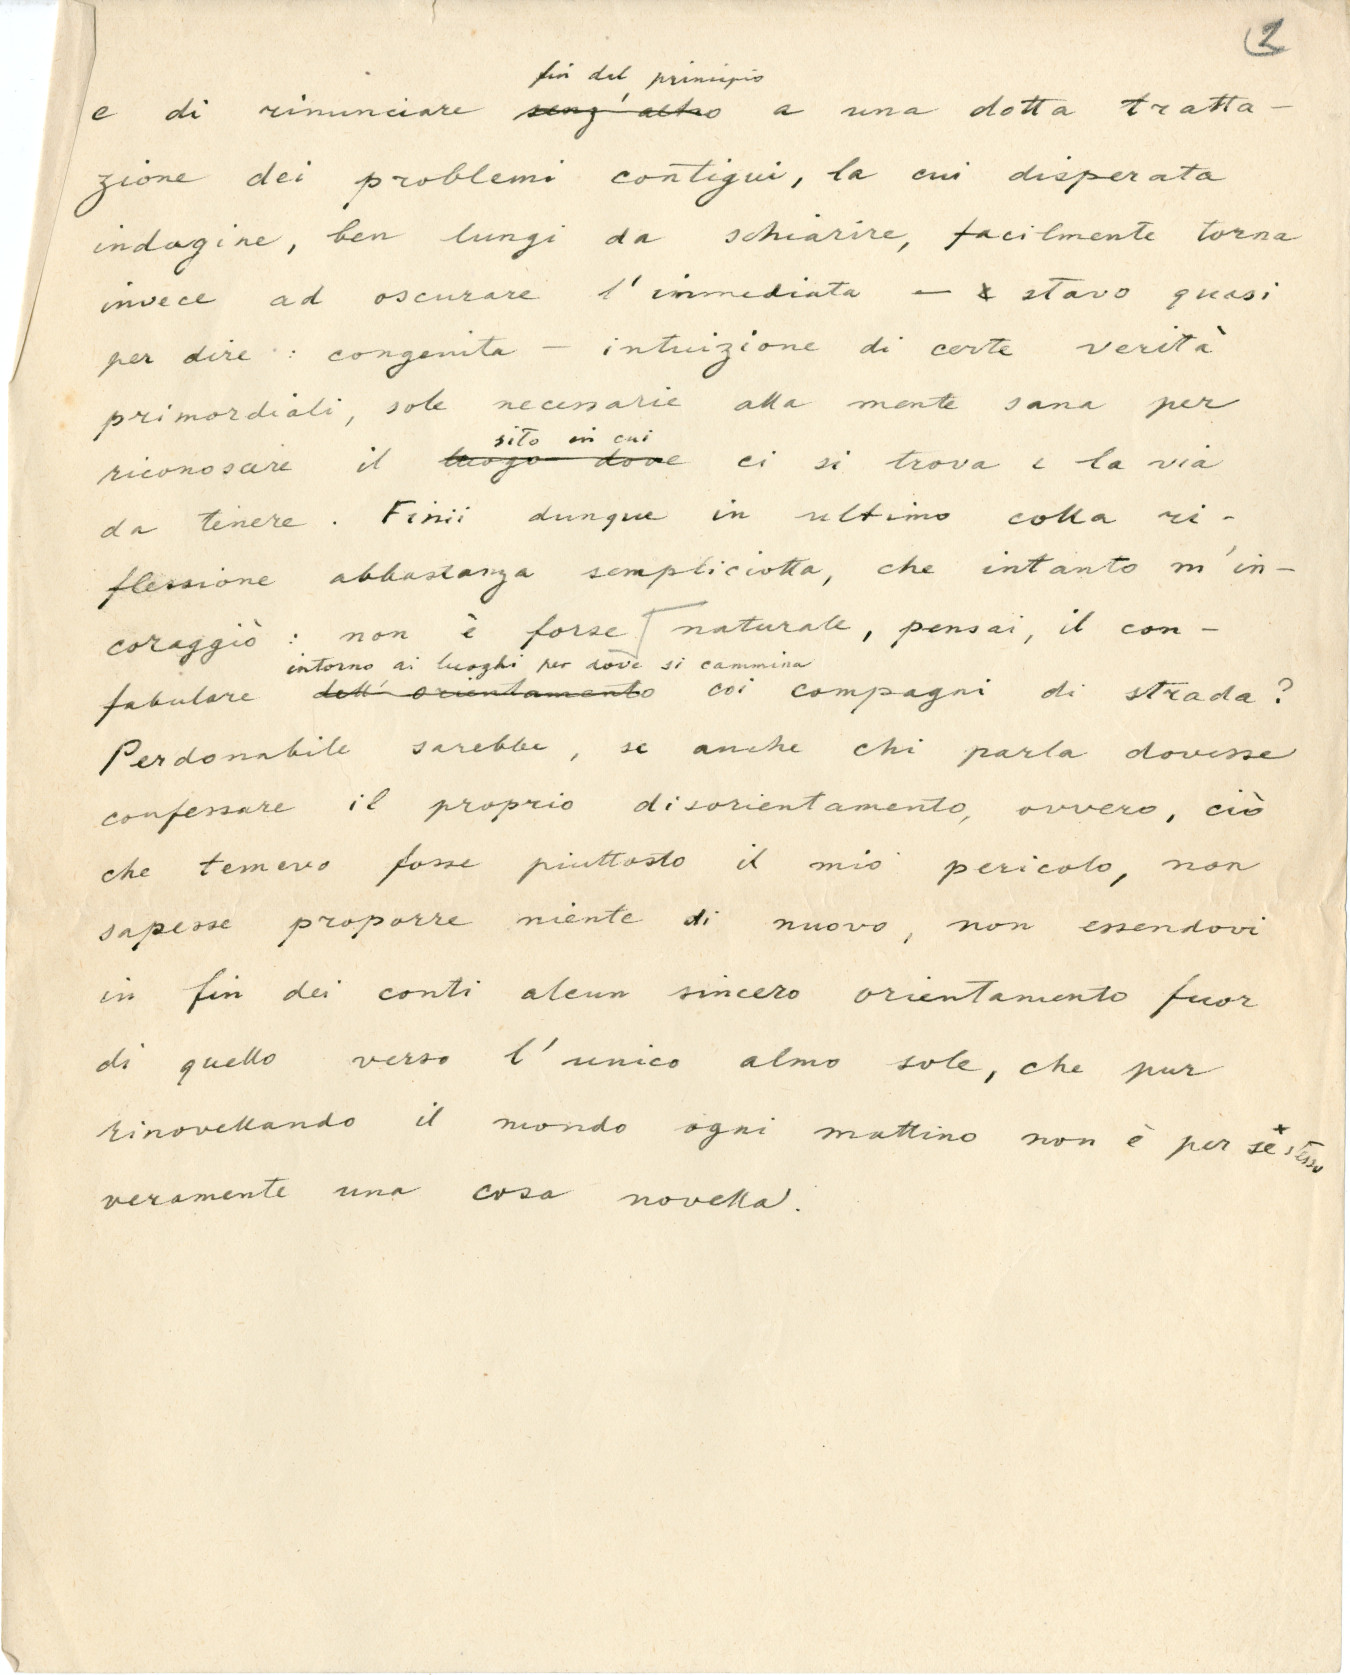 2
fin del principio
e di rinunciare senz'altro a una dotta tratta-
zione dei problemi contigui, la cui disperata
indagine, ben lungi da schiarire, facilmente torna
invece ad oscurare l'immediata — stavo quasi
per dire : congenita — intuizione di certe verità
primordiali, sole necessarie alla mente sana per
sito in cui
riconoscere il luogo dove ci si trova e la via
da tenere. Finii dunque in ultimo colla ri-
flessione abbastanza sempliciotta, che intanto m'in-
coraggiò : non è forse naturale, pensai, il con-
intorno ai luoghi per dove si cammina
fabulare dell'orientamento coi compagni di strada?
Perdonabile sarebbe, se anche chi parla dovesse
confessare il proprio disorientamento, ovvero, ciò
che temevo fosse piuttosto il mio pericolo, non
sapesse proporre niente di nuovo, non essendovi
in fin dei conti alcun sincero orientamento fuor
di quello verso l'unico almo sole, che pur
rinovellando il mondo ogni mattino non è per sè stesso
veramente una cosa novella.